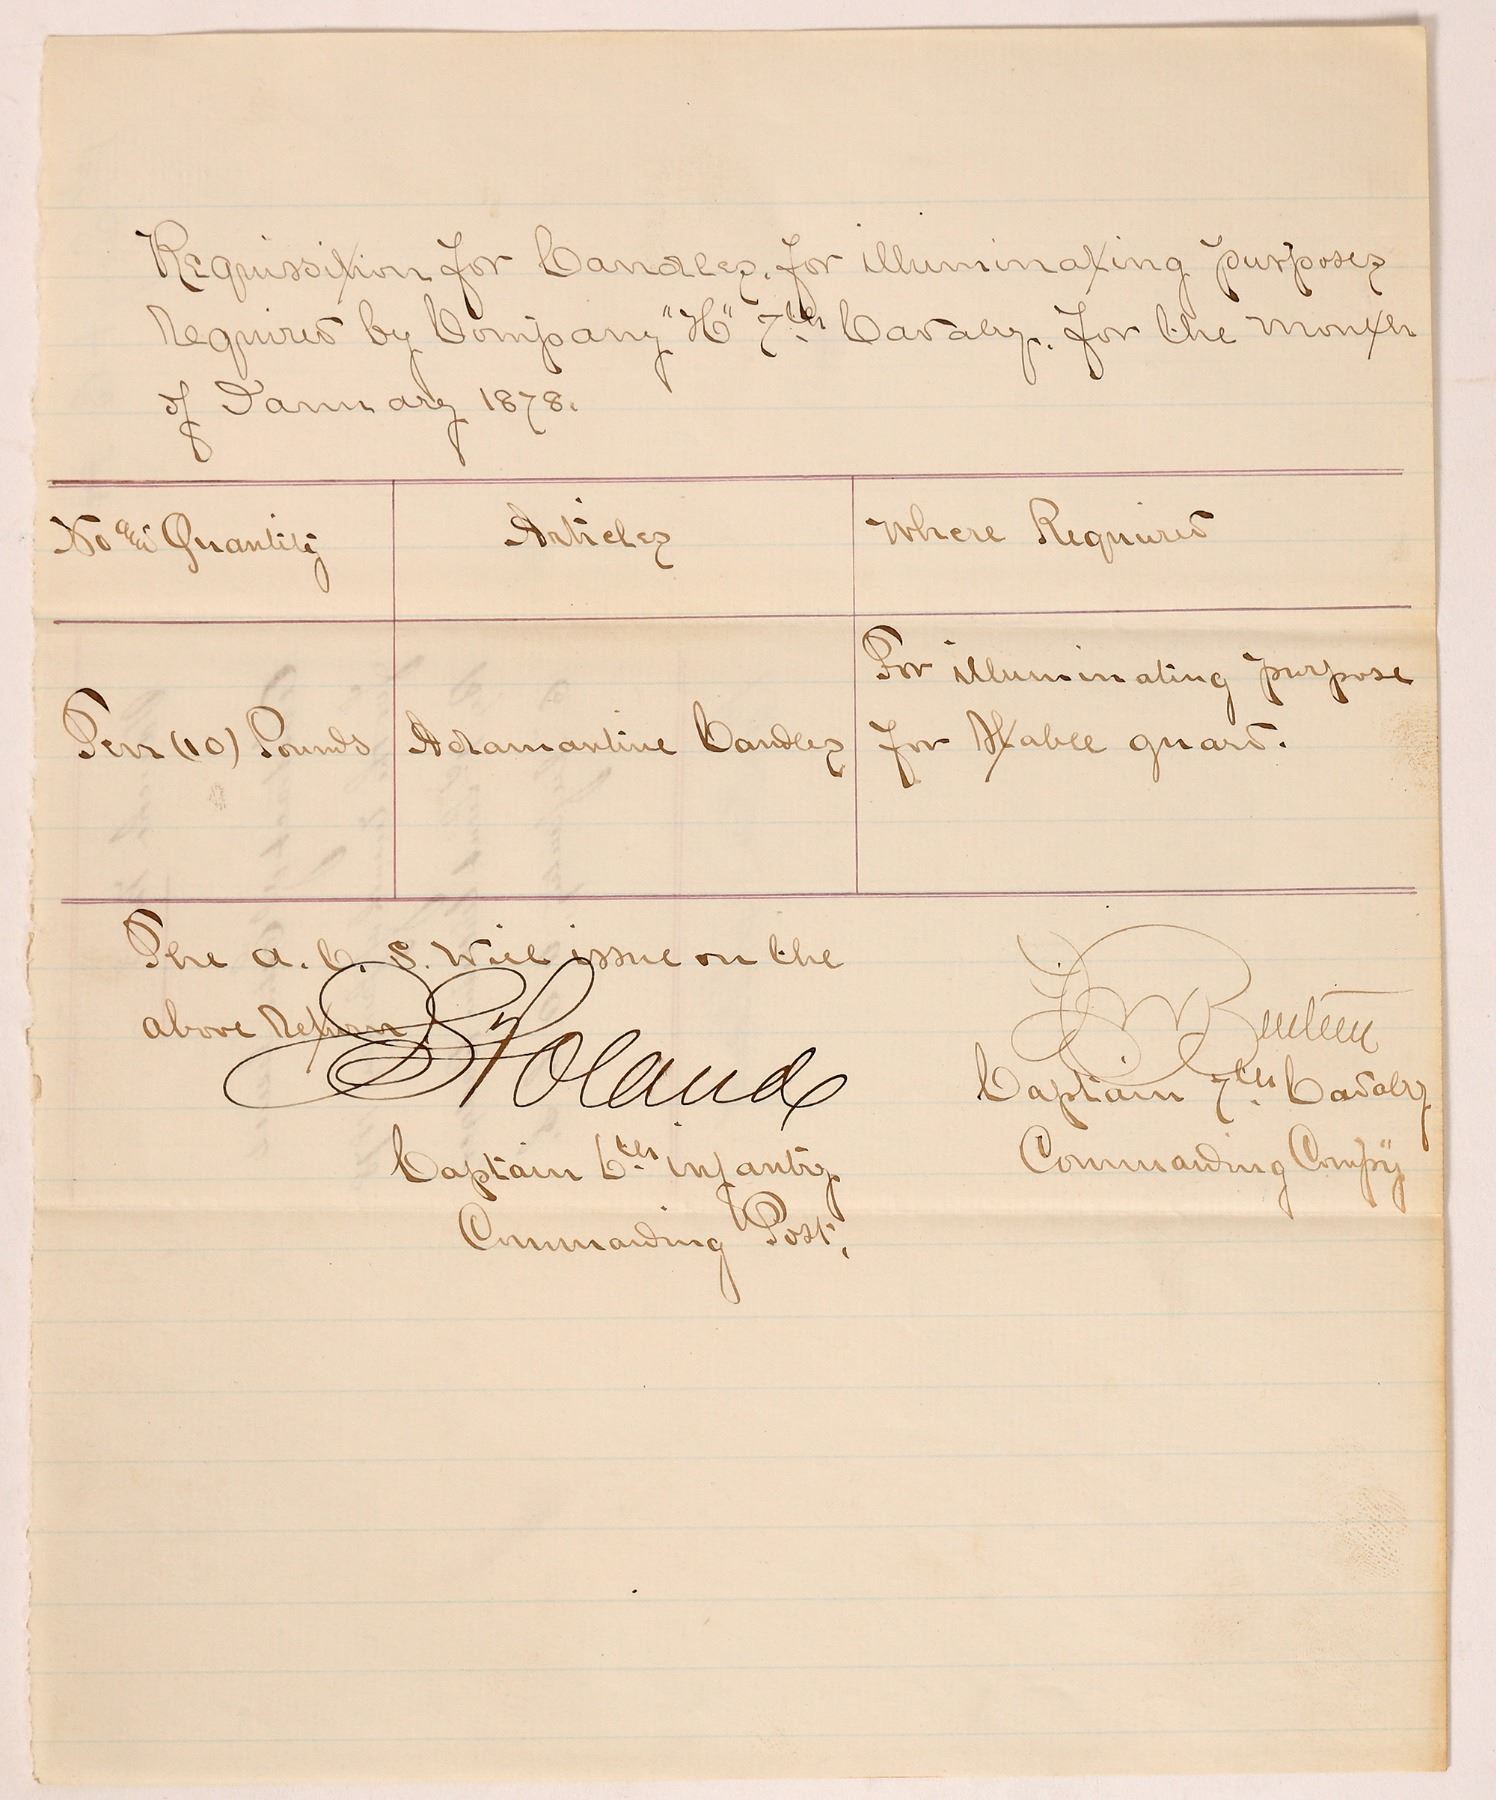 Requissition for Candles, for illuminating purposes
Required by Company "H" 7th Cavalry, for the month
of January 1878.
No and Quantity
Articles
Where Required
Ten (10) Pounds
Adamantine Candles
For illuminating purpose
for Stable guard.
The A. C. S. will issue on the
above Return
J S Poland
Captain 6th infantry
Commanding Post.
F. W. Benteen
Captain 7th Cavalry
Commanding Compy